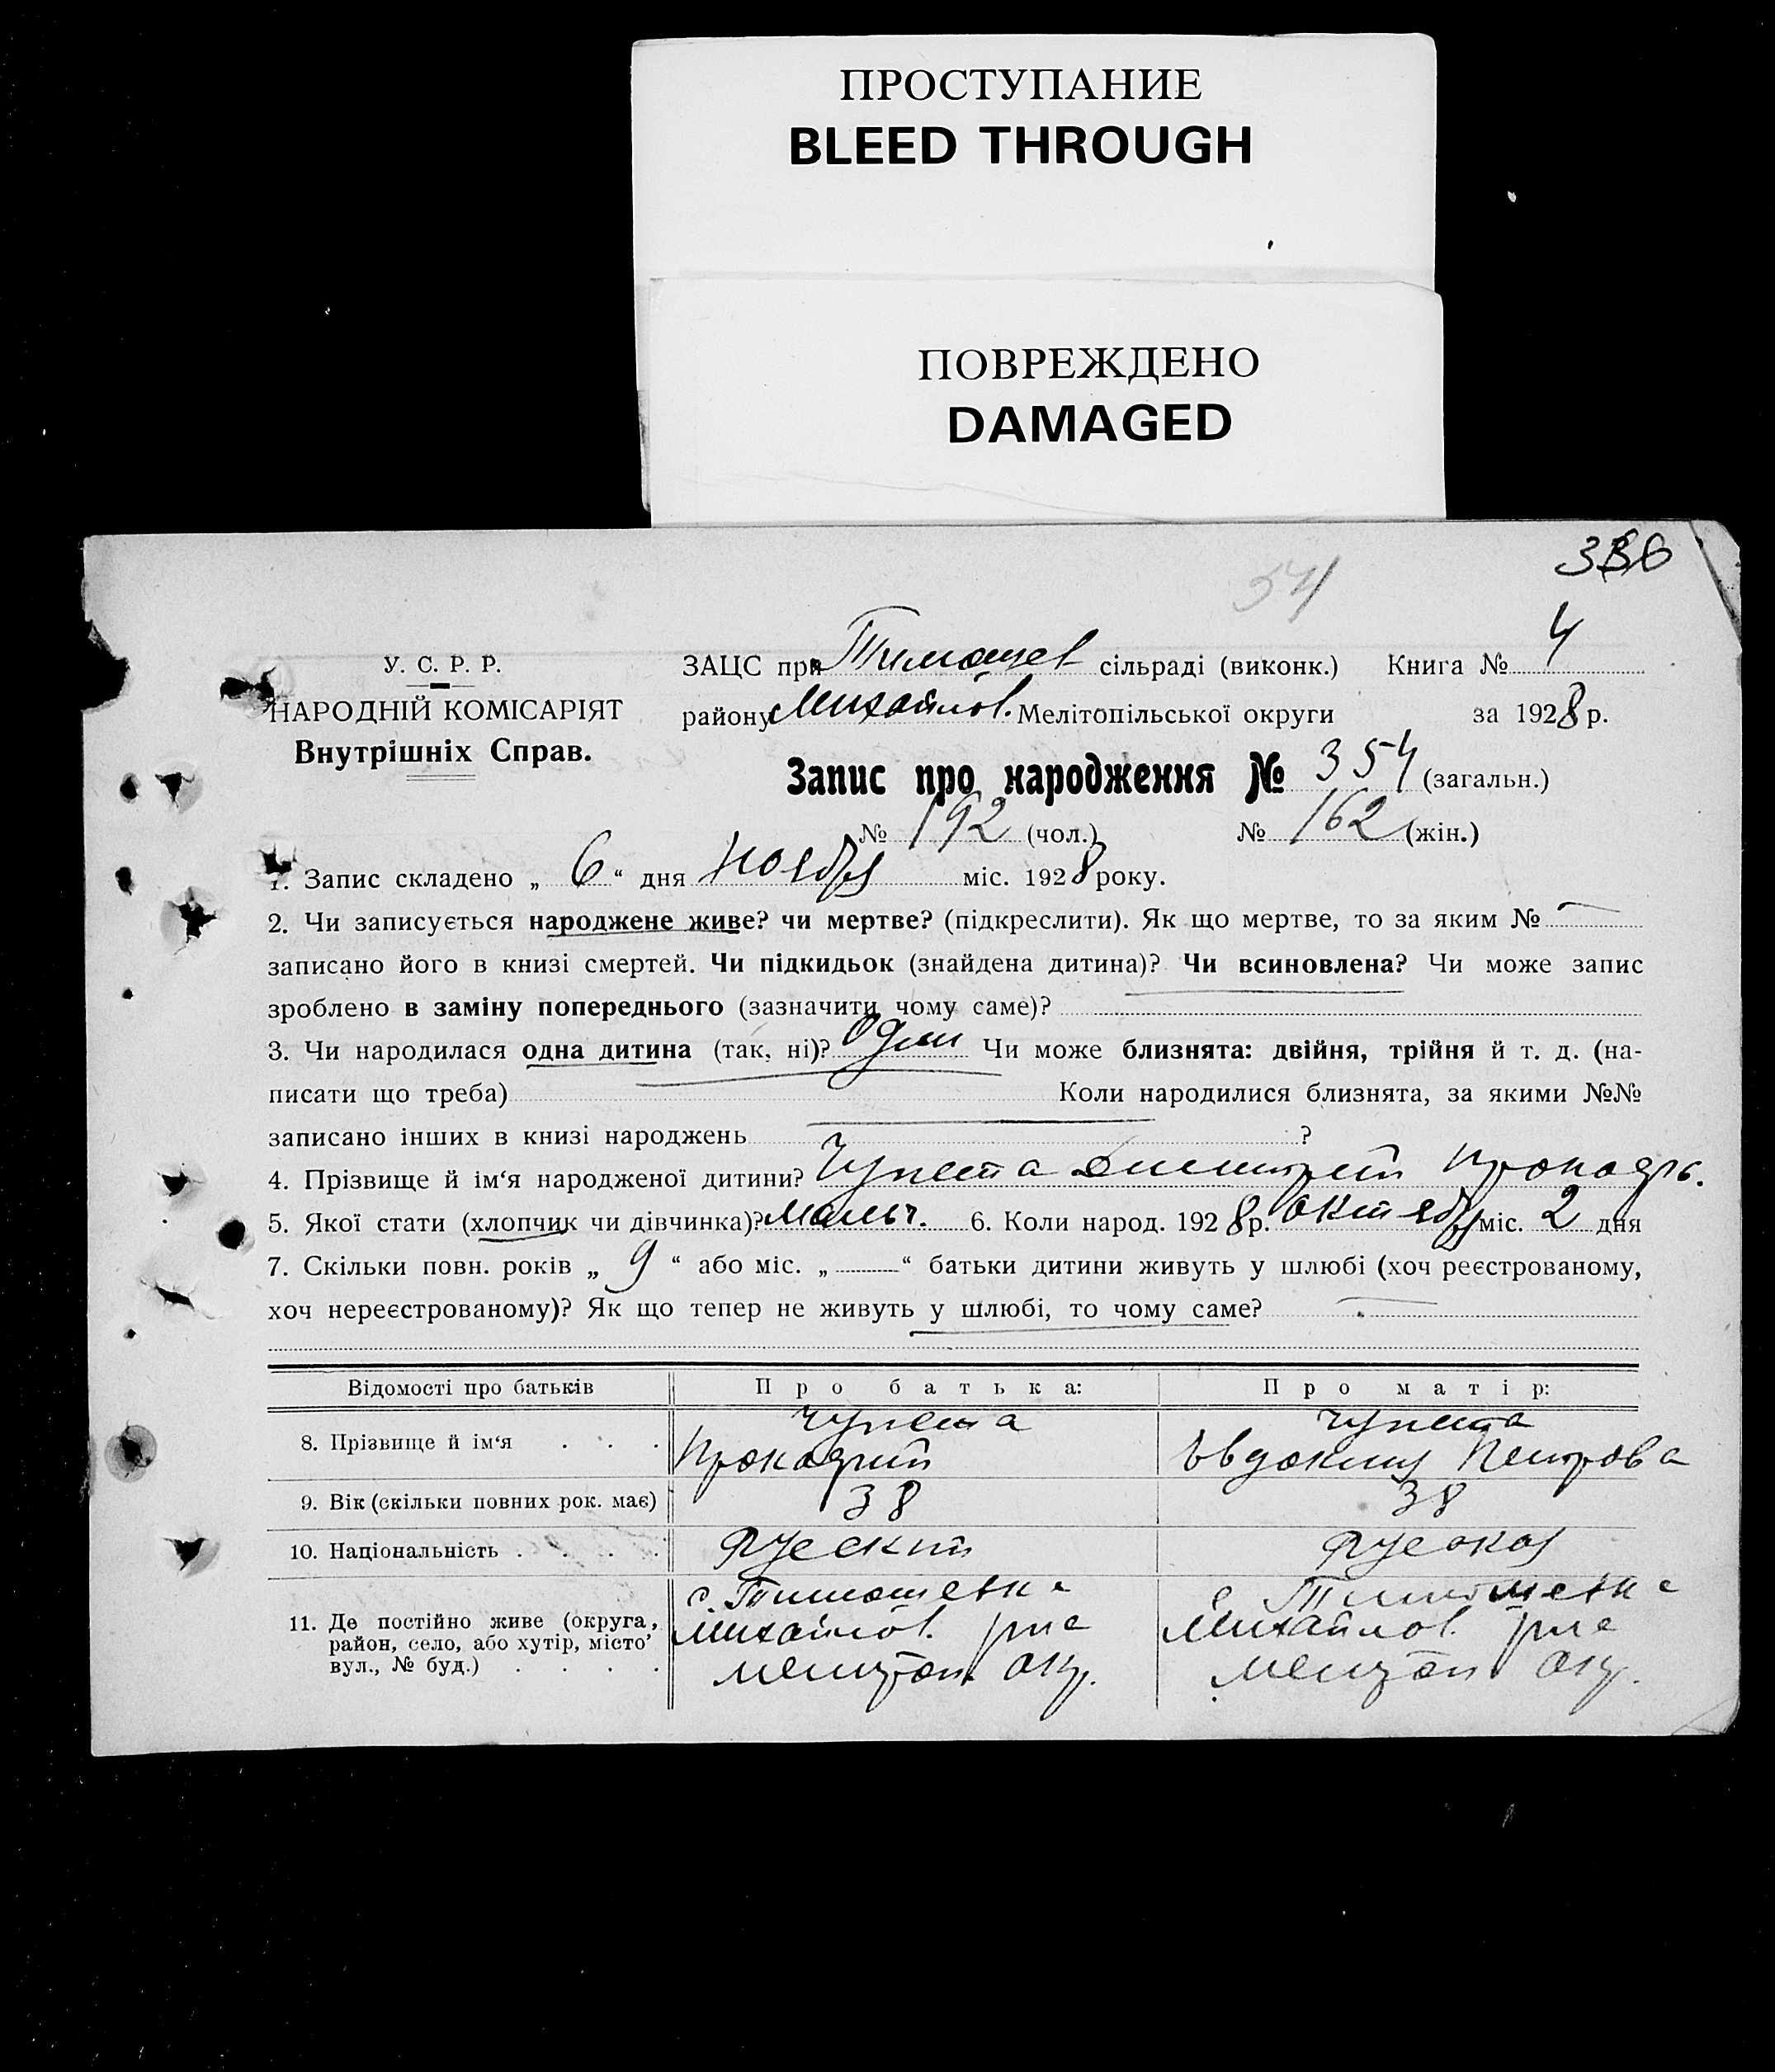 ПРОСТУПАНИЕ
BLEED THROUGH
ПОВРЕЖДЕНО
DAMAGED
336
354
У. С. Р. Р.
НАРОДНІЙ КОМІСАРІЯТ
Внутрішніх Справ.
ЗАЦС при Тимошев сільраді (виконк.) Книга № 4
району Михайлов. Мелітопільської округи за 1928 р.
Запис про народження № 354 (загальн.)
№ 192 (чол.) № 162 (жін.)
1. Запис складено „ 6 “ дня ноября міс. 1928 року.
2. Чи записується народжене живе? чи мертве? (підкреслити). Як що мертве, то за яким № —
записано його в книзі смертей. Чи підкидьок (знайдена дитина)? Чи всиновлена? Чи може запис
зроблено в заміну попереднього (зазначити чому саме)?
3. Чи народилася одна дитина (так, ні)? Один Чи може близнята: двійня, трійня й т. д. (на-
писати що треба) Коли народилися близнята, за якими №№
записано інших в книзі народжень ?
4. Прізвище й ім‘я народженої дитини? Чупета Дмитрий
5. Якої стати (хлопчик чи дівчинка)? Мальч. 6. Коли народ. 1928 р. октября міс. 2 дня
7. Скільки повн. років „ 9 “ або міс. „ — “ батьки дитини живуть у шлюбі (хоч реєстрованому,
хоч нереєстрованому)? Як що тепер не живуть у шлюбі, то чому саме? —
Відомості про батьків Про батька: Про матір:
8. Прізвище й ім‘я . . . Чупета Чупета
Евдокия Петрова
9. Вік (скільки повних рок. має) 38 38
10. Національність . . . . Руский Руская
11. Де постійно живе (округа, район, село, або хутір, місто, вул., № буд.) . . . .
с. Тимошевка с Тимошевка
Михайлов. рна Михайлов. рна
Мелитоп. окр. Мелитоп окр.